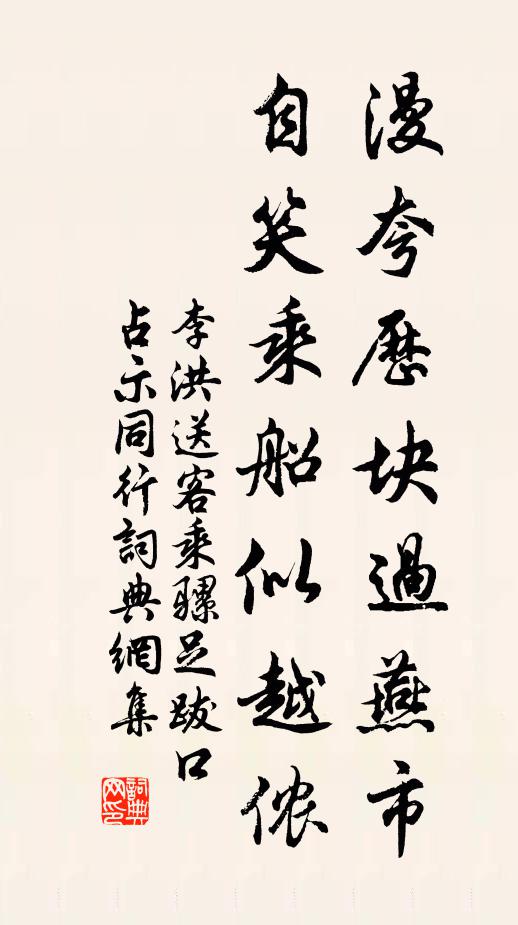 漫夸歷块過燕市
自笑乘船似越侬
李洪送客乘騾足跛口
占示同行詞典網集
詞典網印